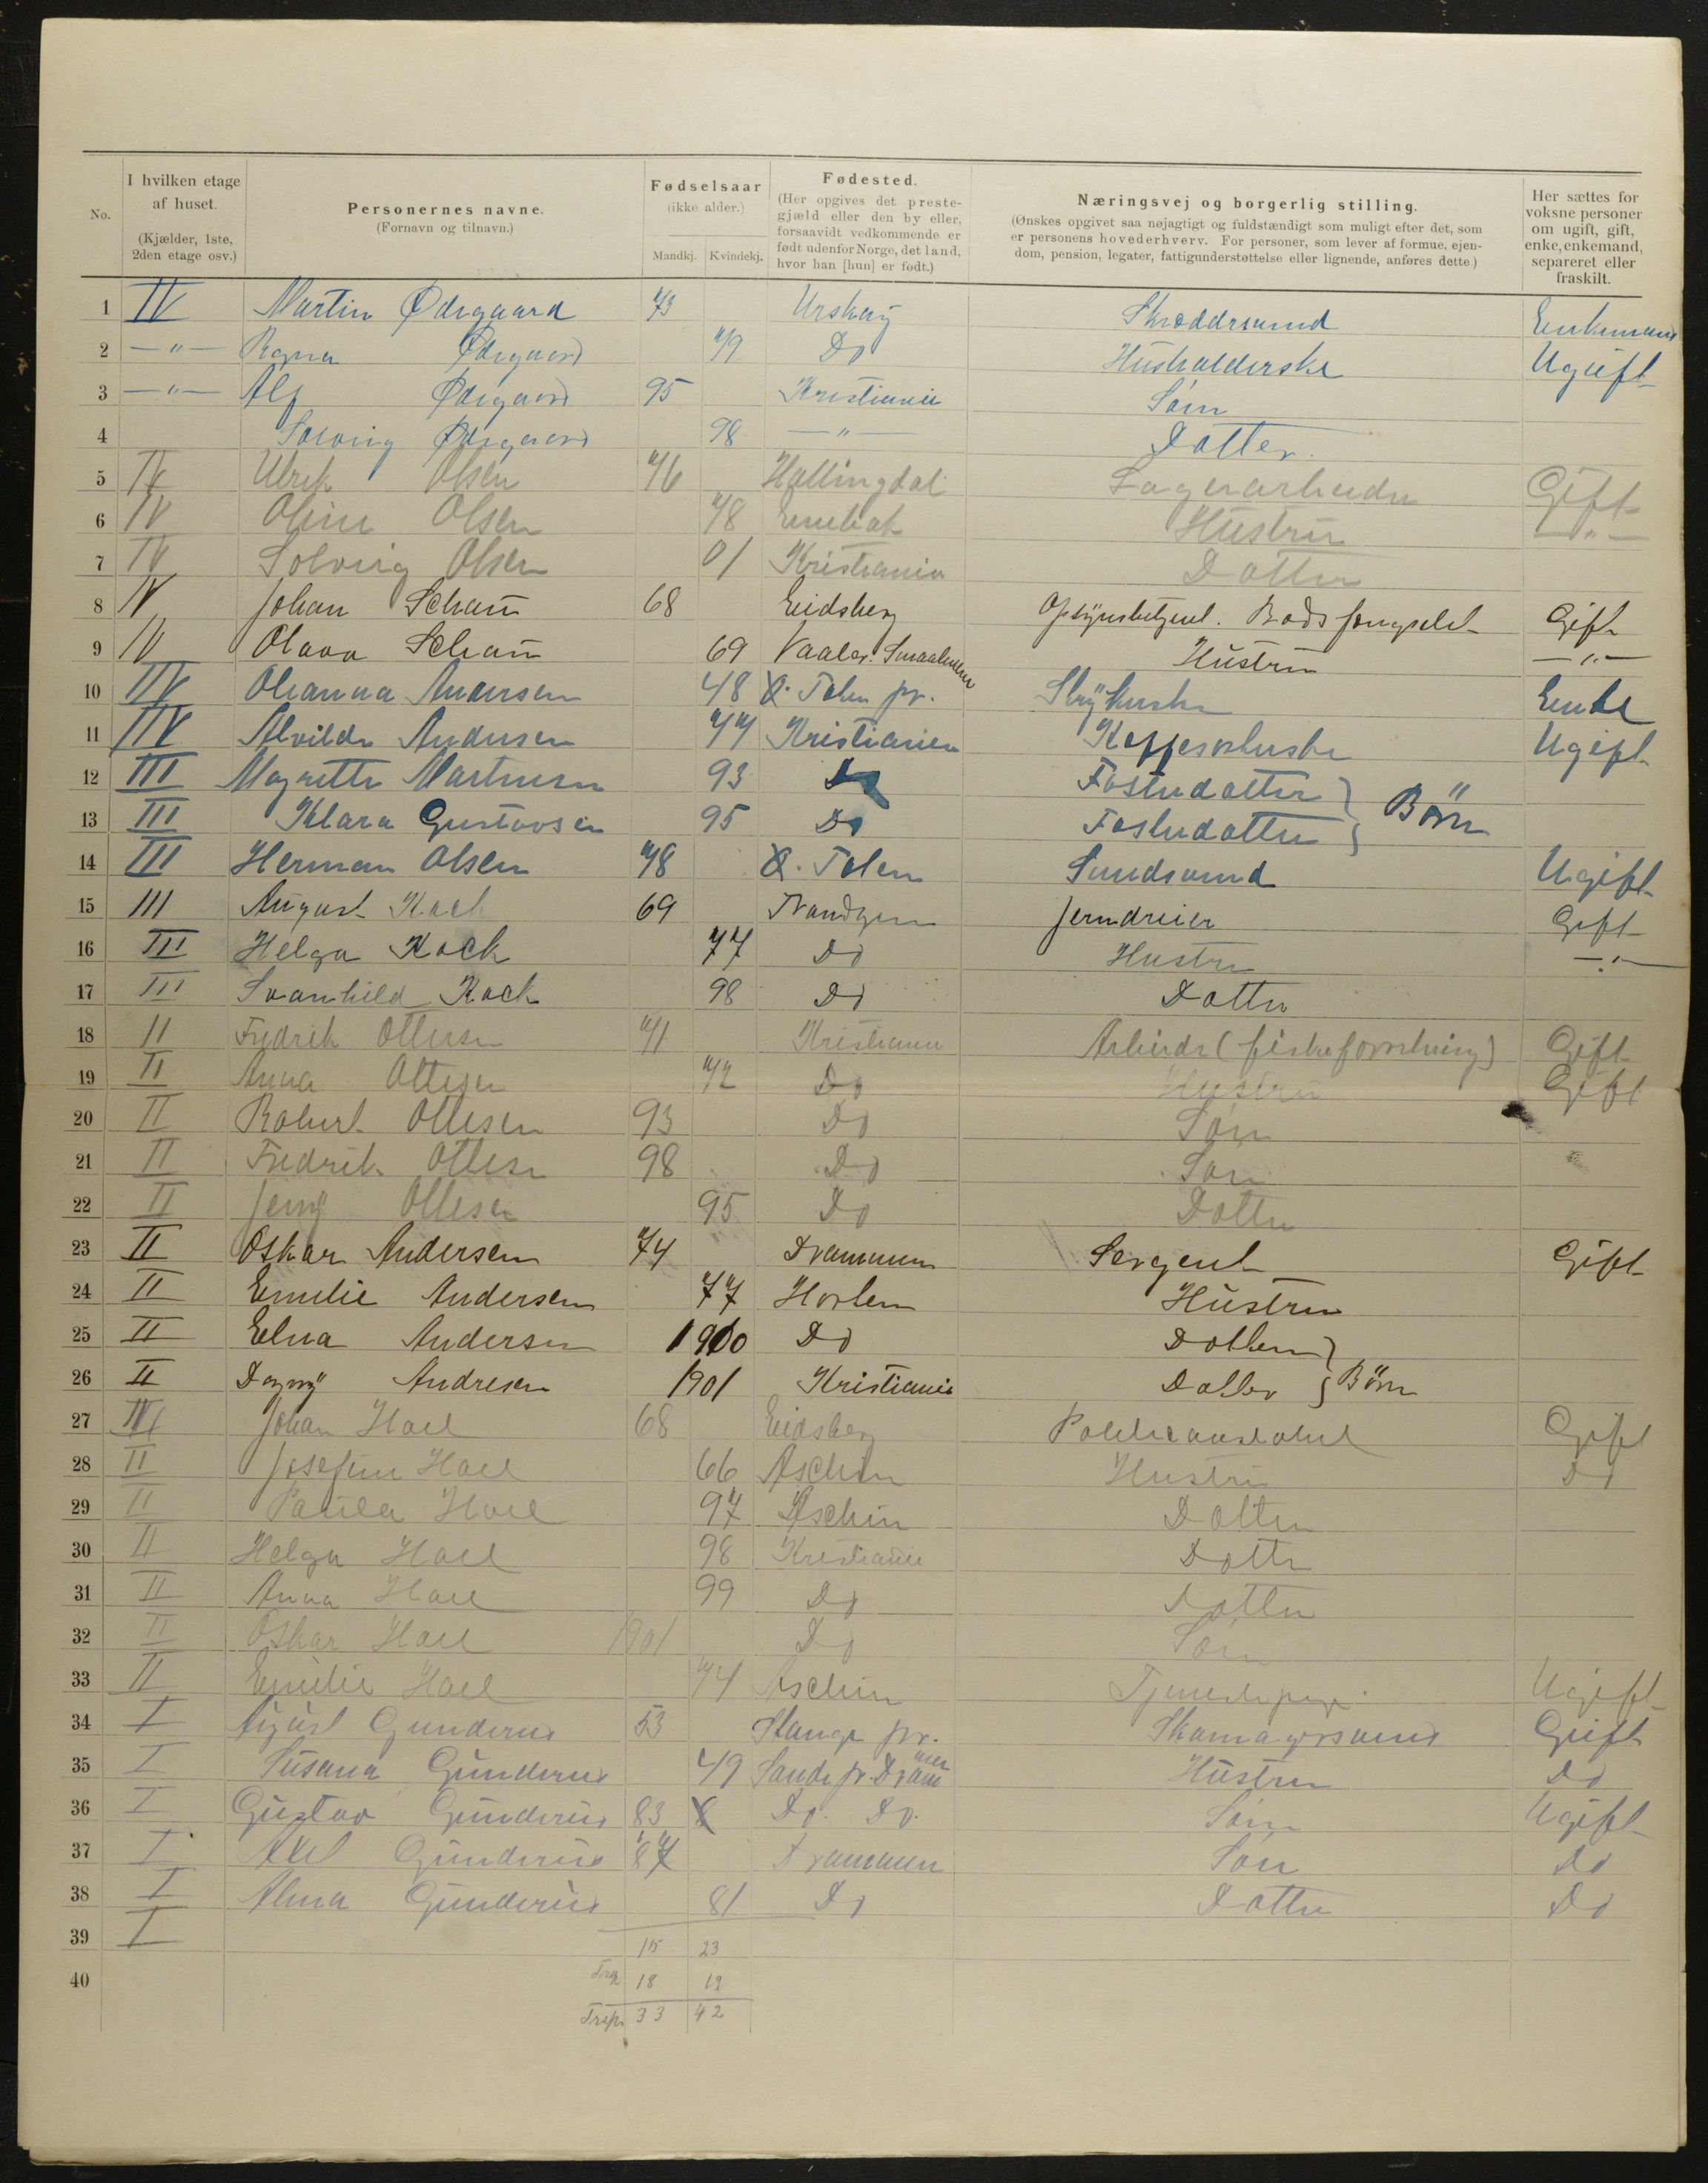 No. I hvilken etage af huset. (Kjælder, 1ste, 2den etage osv.) Personernes navne. (Fornavn og tilnavn.) Fødselsaar (ikke alder.) Mandkj. Kvindekj. Fødested. (Her opgives det prestegjæld eller den by eller, forsaavidt vedkommende er født udenfor Norge, det land, hvor han [hun] er født.) Næringsvej og borgerlig stilling. (Ønskes opgivet saa nøjagtigt og fuldstændigt som muligt efter det, som er personens hovederhverv. For personer, som lever af formue, ejendom, pension, legater, fattigunderstøttelse eller lignende, anføres dette.) Her sættes for voksne personer om ugift, gift, enke, enkemand, separeret eller fraskilt.
1 IV Martin Ødegaard 73 Urskoug Skræddersvend Enkemand
2 —"— Ragna Ødegaard 79 Do Husholderske Ugift
3 —"— Alf Ødegaard 95 Kristiania Søn
4 Solveig Ødegaard 98 —"— Datter.
5 IV Ulrik Olsen 76 Hallingdal Lagerarbeider Gift
6 IV Oline Olsen 78 Hustru —"—
7 IV Solveig Olsen 01 Kristiania Datter
8 IV Johan Schau 68 Eidsberg Opsynsbetjent. Bodsfængslet Gift
9 IV Olava Schau 69 Vaaler. Smaalenene Hustru —"—
10 IV Oleanna Andersen 48 Ø. Toten pr. Strykerske Enke
11 IV Alvilda Andersen 77 Kristiania Ugift
12 III Magrethe Martinsen 93 Do Fosterdatter } Børn
13 III Klara Gustavsen 95 Do Fosterdatter }
14 III Herman Olsen 78 Ø. Toten Smedsvend Ugift
15 III August Koch 69 Jerndreier Gift
16 III Helga Koch 77 Do Hustru —"—
17 III Svanhild Koch 98 Do Datter
18 II Fredrik Ottesen 71 Kristiania Arbeider (fiskeforretning) Gift
19 II Anna Ottesen 72 Do Hustru Gift
20 II Robert Ottesen 93 Do Søn
21 II Fredrik Ottesen 98 Do Søn
22 II Jenny Ottesen 95 Do Datter
23 II Oskar Andersen 74 Drammen Sergent Gift
24 II Emilie Andersen 77 Horten Hustru
25 II Elna Andersen 1900 Do Datter }
26 II Dagny Andresen 1901 Kristiania Datter } Børn
27 II Johan Hoel 68 Eidsberg Politikonstabel Gift
28 II Josefine Hoel 66 Aschim Hustru Do
29 II Paula Hoel 97 Aschim Datter
30 II Helga Hoel 98 Kristiania Datter
31 II Anna Hoel 99 Do Datter
32 II Oskar Hoel 1901 Do Søn
33 II Emilie Hoel 74 Aschim Tjenestepige Ugift
34 I August Gunderus 53 Stange pr. Skomagersvend Gift
35 I Susana Gunderus 49 Sande pr. Drammen Hustru Do
36 I Gustav Gunderus 83 Do. Do. Søn Ugift
37 I Axel Gunderus 87 Drammen Søn Do
38 I Alma Gunderus 81 Do Datter Do
39 I 15 23
40 18 19
33 42